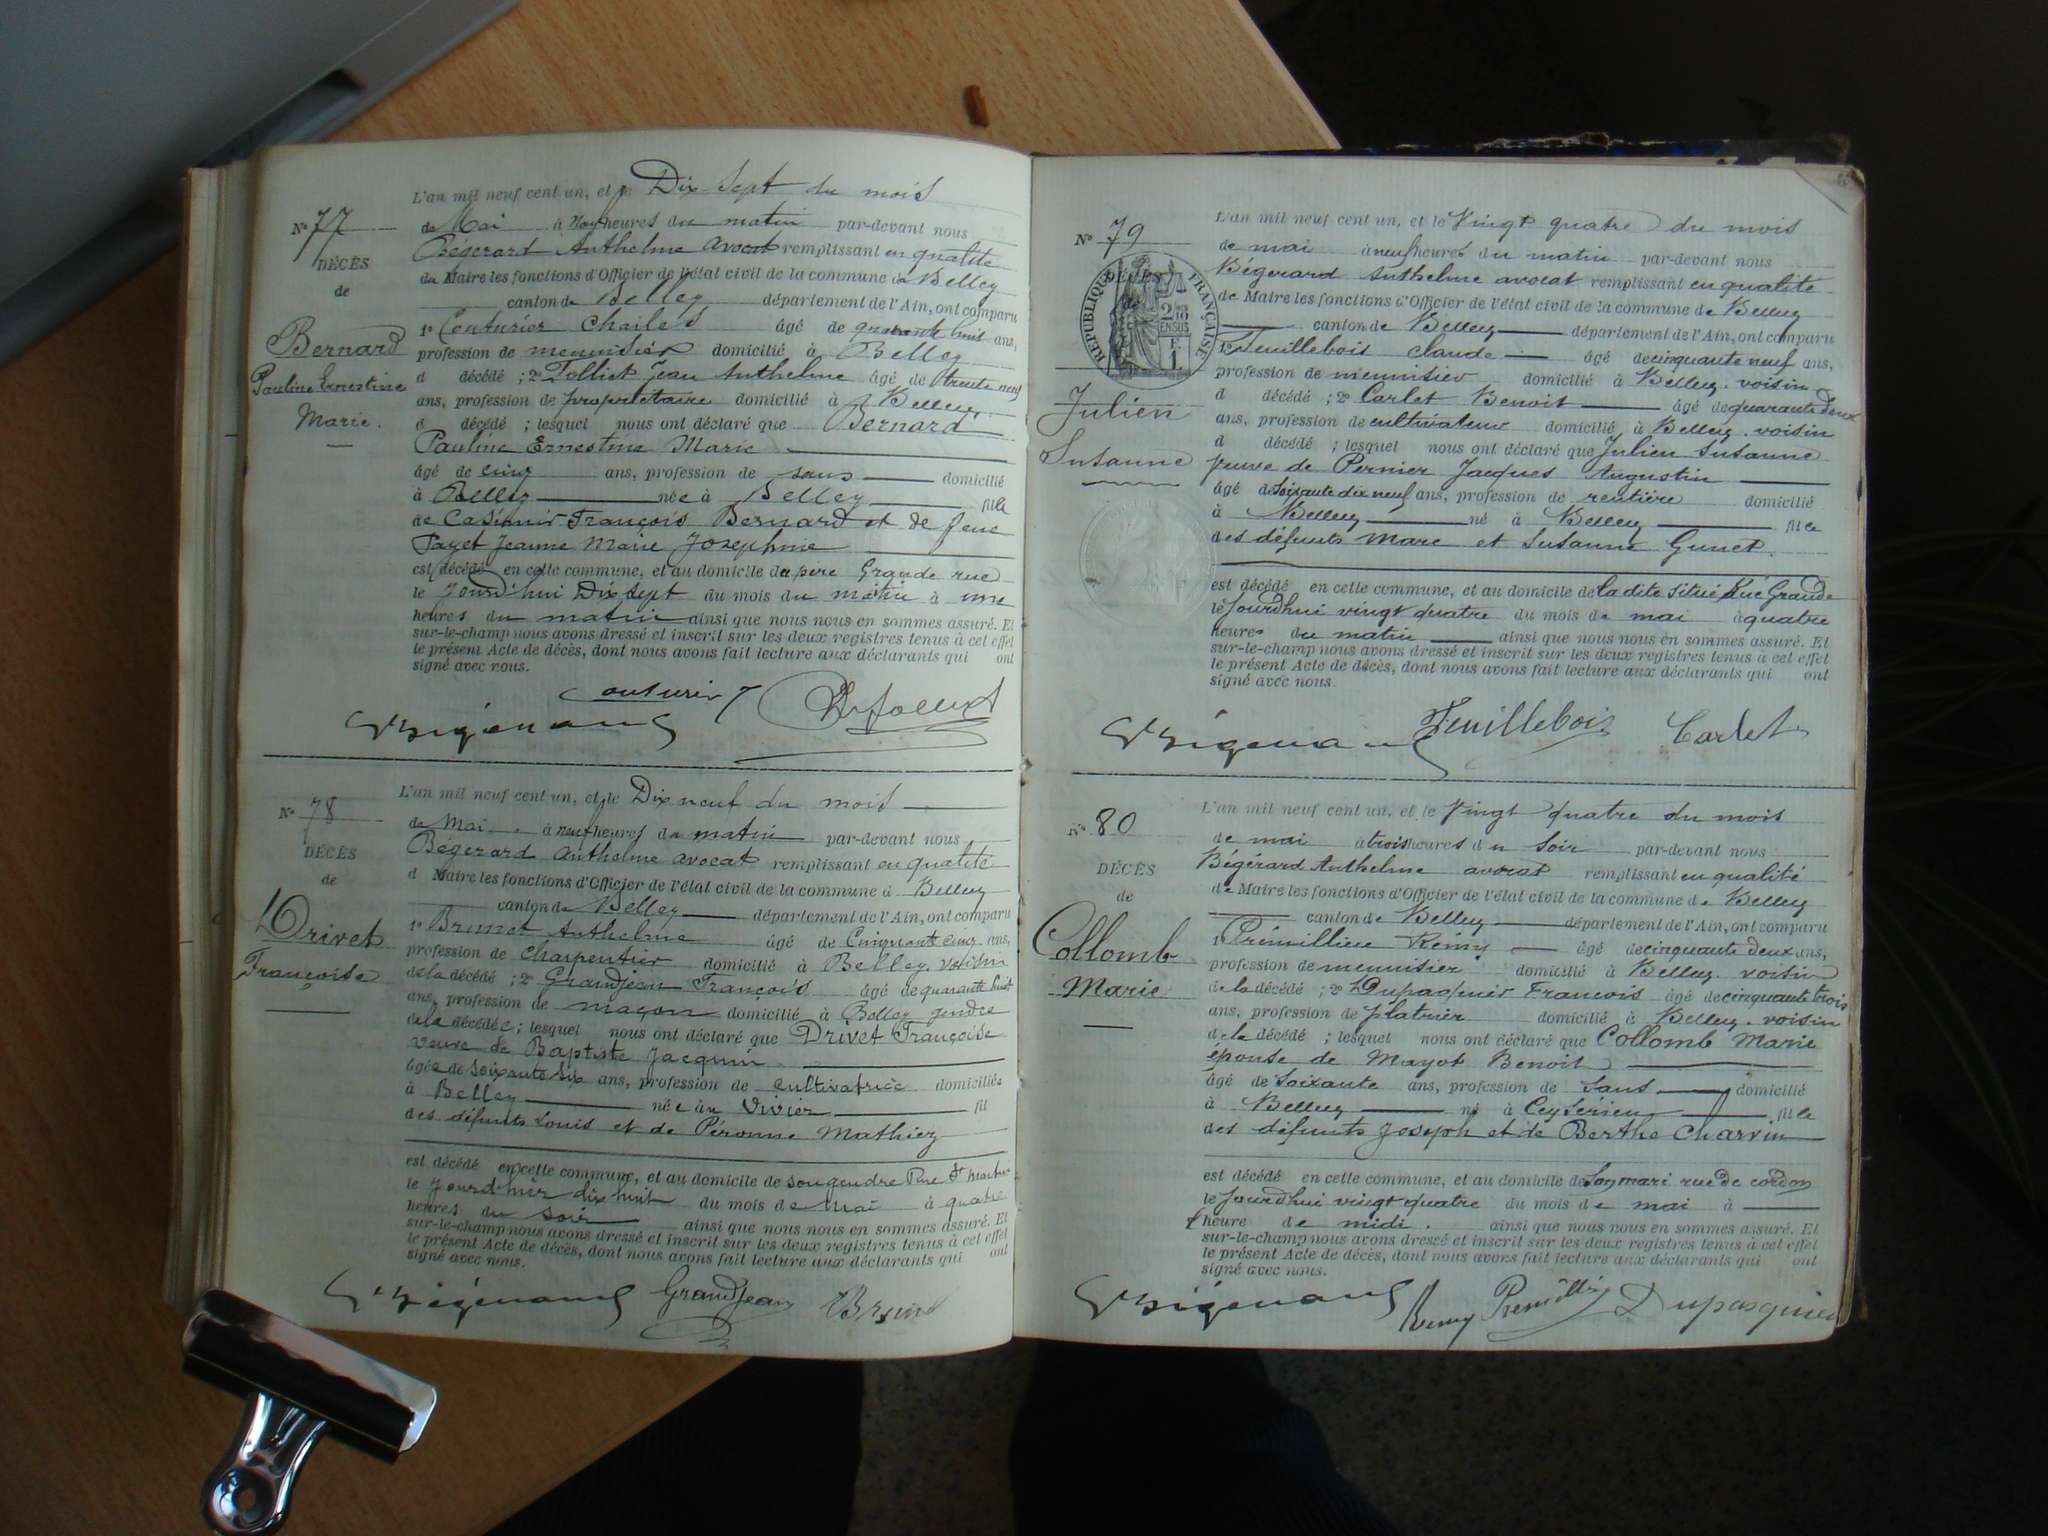 L'an mil neuf cent un, et le Dix-Sept du mois
N° 77
de Mai à neuf heures du matin par-devant nous
Bégerard Anthelme avocat remplissant en qualité
DÉCÈS
du Maire les fonctions d'Officier de l'état civil de la commune de Belley
de
canton de Belley département de l'Ain, ont comparu
1° Couturier Charles âgé de quarante huit ans,
Bernard
profession de menuisier domicilié à Belley
Pauline Ernestine
d décédé ; 2° Tolliet Jean Anthelme âgé de trente neuf
Marie.
ans, profession de propriétaire domicilié à Belley
d décédé ; lesquel nous ont déclaré que Bernard
Pauline Ernestine Marie
âgé de cinq ans, profession de sans domicilié
à Belley née à Belley fille
de Casimir François Bernard et de feue
Payet Jeanne Marie Josephine
est décédé en cette commune, et au domicile du père Grande rue
le Jourd'hui Dix sept du mois du matin à une
heures du matin ainsi que nous nous en sommes assuré. Et
sur-le-champ nous avons dressé et inscrit sur les deux registres tenus à cet effet
le présent Acte de décès, dont nous avons fait lecture aux déclarants qui ont
signé avec nous.
Couturier
L'an mil neuf cent un, et le Dix neuf du mois
N° 78
de Mai à neuf heures du matin par-devant nous
Bégerard Anthelme avocat remplissant en qualité
DÉCÈS
d Maire les fonctions d'Officier de l'état civil de la commune à Belley
de
canton de Belley département de l'Ain, ont comparu
Drivet
1° Brunet Anthelme âgé de Cinquante cinq ans,
Françoise
profession de Charpentier domicilié à Belley. voisin
de la décédé ; 2° Grandjean François âgé de quarante huit
ans, profession de maçon domicilié à Belley gendre
de la décédée ; lesquel nous ont déclaré que Drivet Françoise
veuve de Baptiste Jacquin
âgée de soixante six ans, profession de cultivatrice domiciliée
à Belley née au Vivier fil
des défunts Louis et de Péronne Mathiez
est décédé en cette commune, et au domicile de son gendre Rue St Martin
le Jourd'hier dix huit du mois de Mai à quatre
heures du soir ainsi que nous nous en sommes assuré. Et
sur-le-champ nous avons dressé et inscrit sur les deux registres tenus à cet effet
le présent Acte de décès, dont nous avons fait lecture aux déclarants qui ont
signé avec nous.
Grandjean Brunet
L'an mil neuf cent un, et le Vingt quatre du mois
N° 79
de mai à neuf heures du matin par-devant nous
Bégerard Anthelme avocat remplissant en qualité
DÉCÈS
de
RÉPUBLIQUE FRANÇAISE
2/10 EN SUS
de Maire les fonctions d'Officier de l'état civil de la commune de Belley
canton de Belley département de l'Ain, ont comparu
1° Feuillebois Claude âgé de cinquante neuf ans,
profession de menuisier domicilié à Belley. voisin
Julien
d décédé ; 2° Carlet Benoit âgé de quarante deux
Susanne
ans, profession de cultivateur domicilié à Belley. voisin
d décédé ; lesquel nous ont déclaré que Julien Susanne
veuve de Pernier Jacques Augustin
âgé de soixante dix neuf ans, profession de rentière domicilié
à Belley né à Belley fille
des défunts Marc et Susanne Gunet.
est décédé en cette commune, et au domicile de ladite situé Rue Grande
le Jourdhui vingt quatre du mois de mai à quatre
heures du matin ainsi que nous nous en sommes assuré. Et
sur-le-champ nous avons dressé et inscrit sur les deux registres tenus à cet effet
le présent Acte de décès, dont nous avons fait lecture aux déclarants qui ont
signé avec nous.
Feuillebois Carlet
L'an mil neuf cent un, et le Vingt quatre du mois
N° 80
de mai à trois heures du soir par-devant nous
Bégérard Anthelme avocat remplissant en qualité
DÉCÈS
de Maire les fonctions d'Officier de l'état civil de la commune de Belley
de
canton de Belley département de l'Ain, ont comparu
Collomb
1° Prémillieu Rémy âgé de cinquante deux ans,
Marie
profession de menuisier domicilié à Belley. voisin
de la décédé ; 2° Dupasquier François âgé de cinquante trois
ans, profession de platrier domicilié à Belley. voisin
de la décédé ; lesquel nous ont déclaré que Collomb Marie
épouse de Mayot Benoit
âgé de Soixante ans, profession de Sans domicilié
à Belley né à Ceyzérieu fille
des défunts Joseph et de Berthe Charvin
est décédé en cette commune, et au domicile de Son mari rue de cordon
le Jourdhui vingt quatre du mois de mai à
l'heure de midi. ainsi que nous nous en sommes assuré. Et
sur-le-champ nous avons dressé et inscrit sur les deux registres tenus à cet effet
le présent Acte de décès, dont nous avons fait lecture aux déclarants qui ont
signé avec nous.
Remy Dupasquier